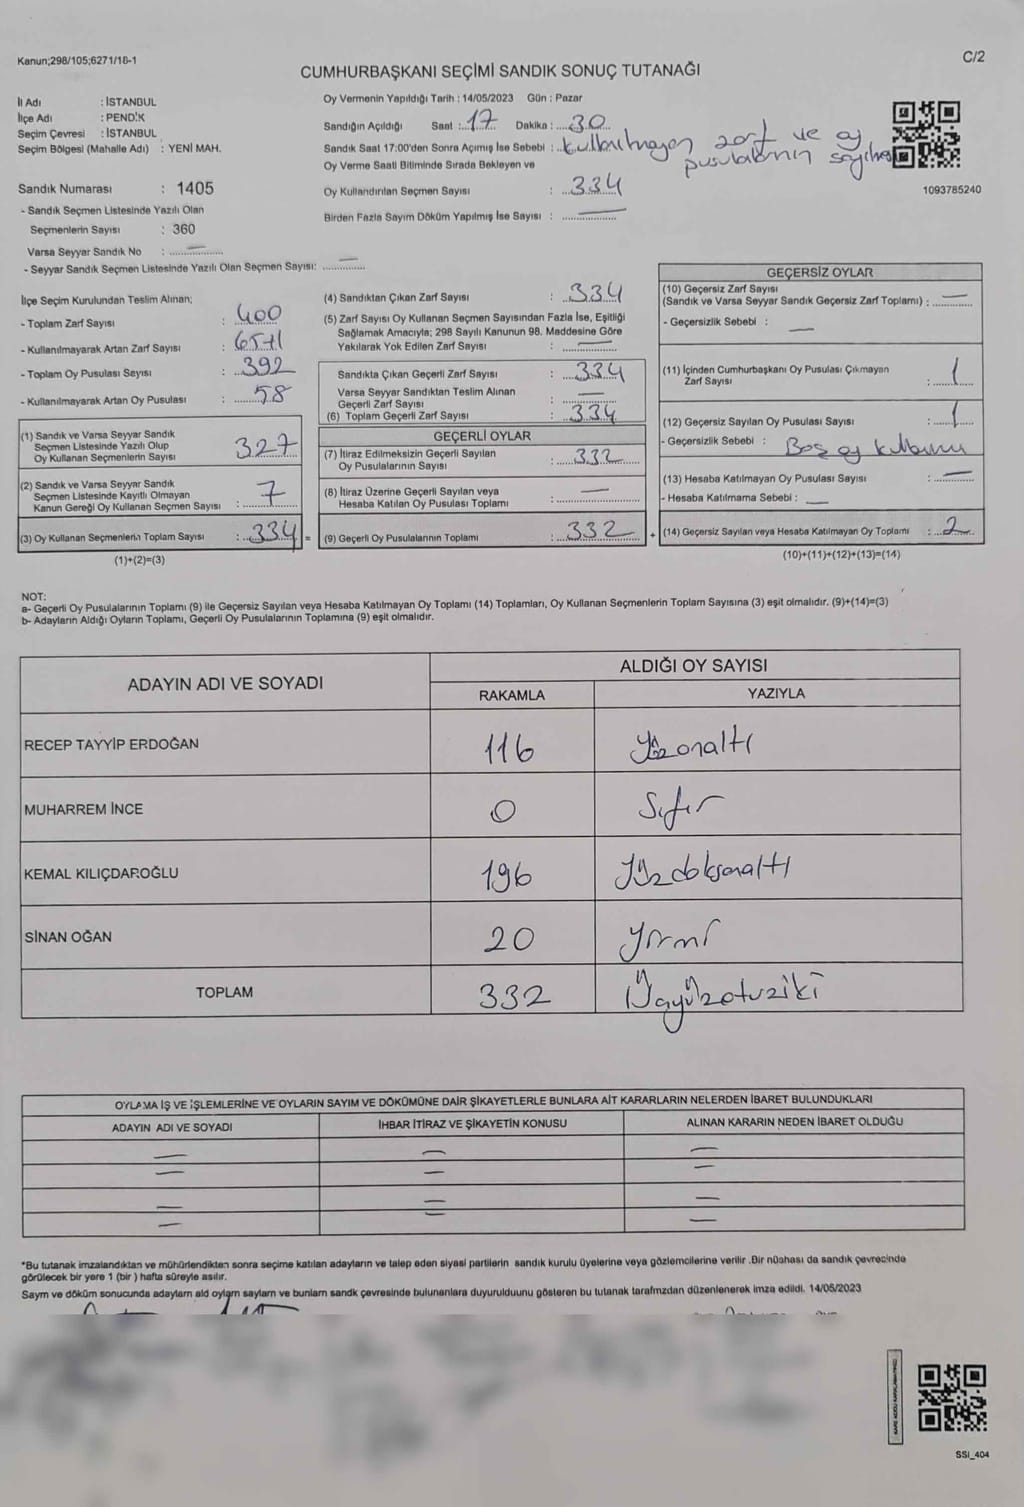 Kanun;298/105;6271/18-1
C/2
CUMHURBAŞKANI SEÇİMİ SANDIK SONUÇ TUTANAĞI
İl Adı : İSTANBUL
İlçe Adı : PENDİK
Seçim Çevresi : İSTANBUL
Seçim Bölgesi (Mahalle Adı) : YENİ MAH.
Oy Vermenin Yapıldığı Tarih : 14/05/2023 Gün : Pazar
Sandığın Açıldığı Saat : 17 Dakika : 30
Sandık Saat 17:00'den Sonra Açımış İse Sebebi : kullanılmayan zarf ve oy pusulalarının sayılması
Oy Verme Saati Bitiminde Sırada Bekleyen ve
Oy Kullandırılan Seçmen Sayısı : 334
Birden Fazla Sayım Döküm Yapılmış İse Sayısı : —
1093785240
Sandık Numarası : 1405
- Sandık Seçmen Listesinde Yazılı Olan
Seçmenlerin Sayısı : 360
Varsa Seyyar Sandık No : —
- Seyyar Sandık Seçmen Listesinde Yazılı Olan Seçmen Sayısı: —
İlçe Seçim Kurulundan Teslim Alınan;
- Toplam Zarf Sayısı : 400
- Kullanılmayarak Artan Zarf Sayısı : 65+1
- Toplam Oy Pusulası Sayısı : 392
- Kullanılmayarak Artan Oy Pusulası : 58
(1) Sandık ve Varsa Seyyar Sandık
Seçmen Listesinde Yazılı Olup
Oy Kullanan Seçmenlerin Sayısı 327
(2) Sandık ve Varsa Seyyar Sandık
Seçmen Listesinde Kayıtlı Olmayan
Kanun Gereği Oy Kullanan Seçmen Sayısı : 7
(3) Oy Kullanan Seçmenlerin Toplam Sayısı : 334 =
(1)+(2)=(3)
(4) Sandıktan Çıkan Zarf Sayısı : 334
(5) Zarf Sayısı Oy Kullanan Seçmen Sayısından Fazla İse, Eşitliği
Sağlamak Amacıyla; 298 Sayılı Kanunun 98. Maddesine Göre
Yakılarak Yok Edilen Zarf Sayısı : —
Sandıkta Çıkan Geçerli Zarf Sayısı : 334
Varsa Seyyar Sandıktan Teslim Alınan
Geçerli Zarf Sayısı : —
(6) Toplam Geçerli Zarf Sayısı : 334
GEÇERLİ OYLAR
(7) İtiraz Edilmeksizin Geçerli Sayılan
Oy Pusulalarının Sayısı : 332
(8) İtiraz Üzerine Geçerli Sayılan veya
Hesaba Katılan Oy Pusulası Toplamı : —
(9) Geçerli Oy Pusulalarının Toplamı : 332 +
GEÇERSİZ OYLAR
(10) Geçersiz Zarf Sayısı
(Sandık ve Varsa Seyyar Sandık Geçersiz Zarf Toplamı) : —
- Geçersizlik Sebebi : —
(11) İçinden Cumhurbaşkanı Oy Pusulası Çıkmayan
Zarf Sayısı : 1
(12) Geçersiz Sayılan Oy Pusulası Sayısı : 1
- Geçersizlik Sebebi : Boş oy kullanımı
(13) Hesaba Katılmayan Oy Pusulası Sayısı : —
- Hesaba Katılmama Sebebi : —
(14) Geçersiz Sayılan veya Hesaba Katılmayan Oy Toplamı : 2
(10)+(11)+(12)+(13)=(14)
NOT:
a- Geçerli Oy Pusulalarının Toplamı (9) ile Geçersiz Sayılan veya Hesaba Katılmayan Oy Toplamı (14) Toplamları, Oy Kullanan Seçmenlerin Toplam Sayısına (3) eşit olmalıdır. (9)+(14)=(3)
b- Adayların Aldığı Oyların Toplamı, Geçerli Oy Pusulalarının Toplamına (9) eşit olmalıdır.
ADAYIN ADI VE SOYADI
ALDIĞI OY SAYISI
RAKAMLA YAZIYLA
RECEP TAYYİP ERDOĞAN 116 Yüzonaltı
MUHARREM İNCE 0 Sıfır
KEMAL KILIÇDAROĞLU 196 Yüzdoksanaltı
SİNAN OĞAN 20 Yirmi
TOPLAM 332 Üçyüzotuziki
OYLAMA İŞ VE İŞLEMLERİNE VE OYLARIN SAYIM VE DÖKÜMÜNE DAİR ŞİKAYETLERLE BUNLARA AİT KARARLARIN NELERDEN İBARET BULUNDUKLARI
ADAYIN ADI VE SOYADI İHBAR İTİRAZ VE ŞİKAYETİN KONUSU ALINAN KARARIN NEDEN İBARET OLDUĞU
*Bu tutanak imzalandıktan ve mühürlendikten sonra seçime katılan adayların ve talep eden siyasi partilerin sandık kurulu üyelerine veya gözlemcilerine verilir .Bir nüshası da sandık çevresinde
görülecek bir yere 1 (bir ) hafta süreyle asılır.
Sayım ve döküm sonucunda adayların ald oyların saylam ve bunlarn sandk çevresinde bulunanlara duyurulduunu gösteren bu tutanak tarafmzdan düzenlenerek imza edildi. 14/05/2023
SSİ_404